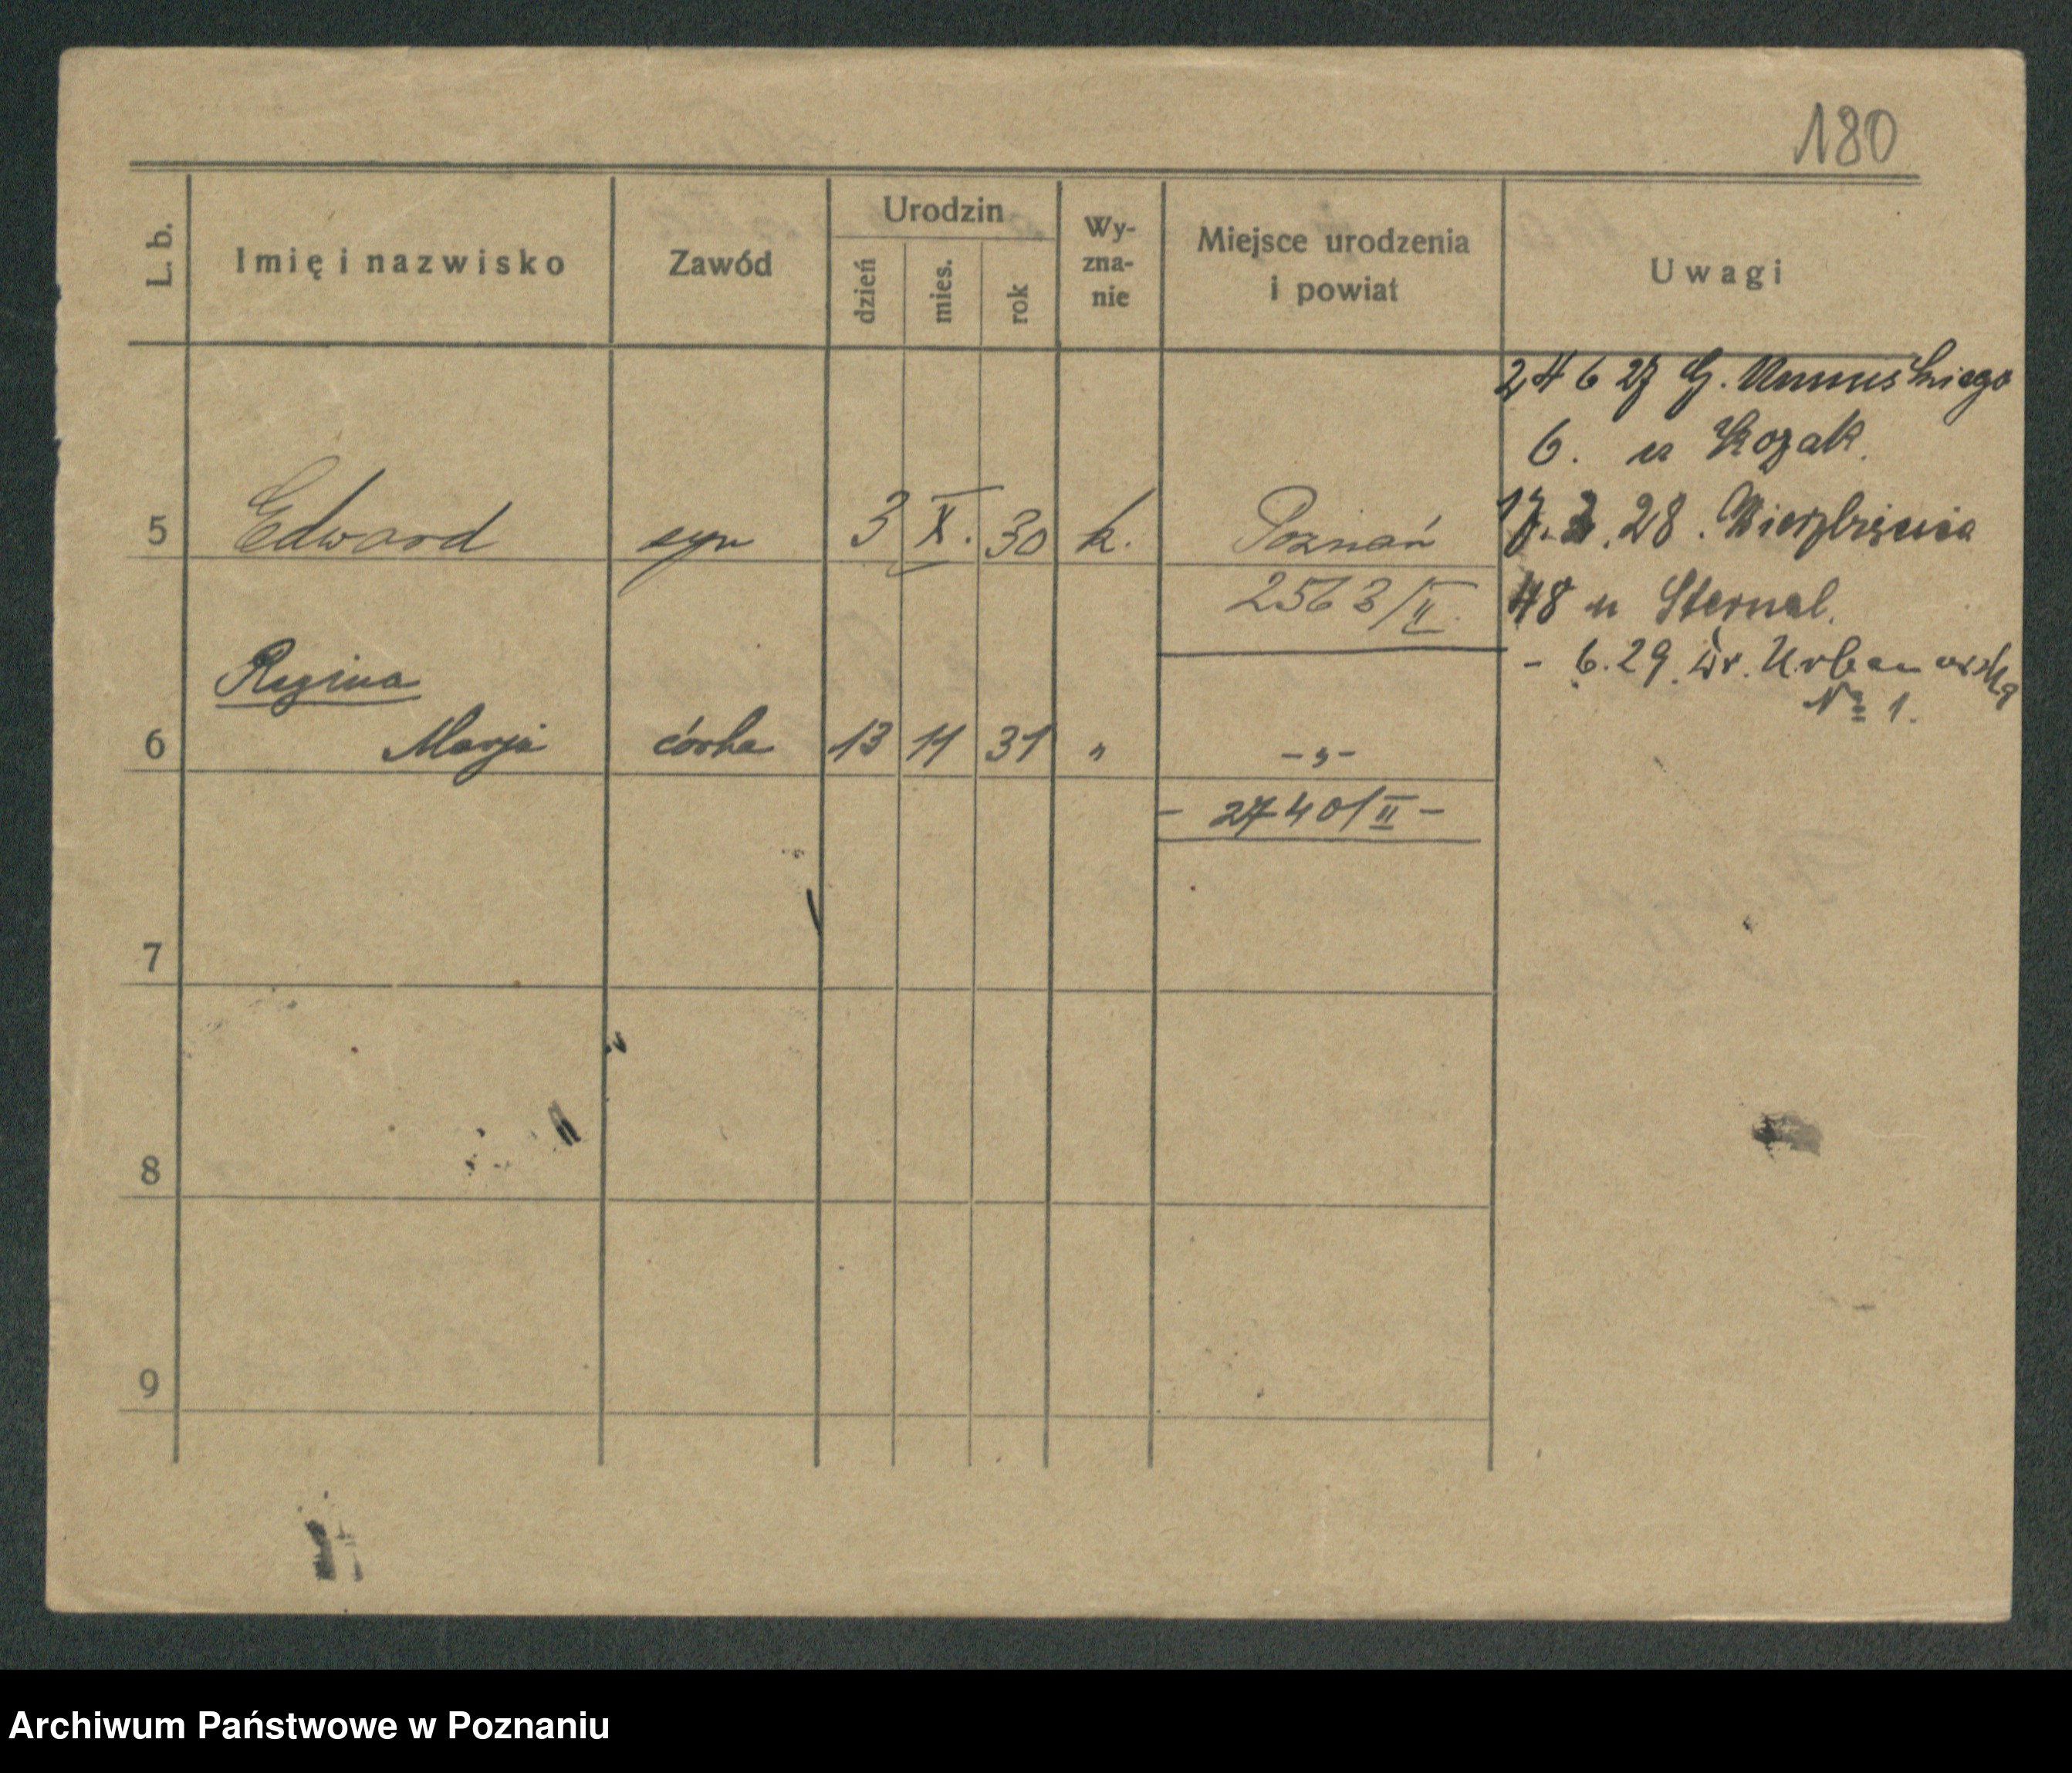 180
L. b. Imię i nazwisko Zawód Urodzin dzień mies. rok Wy-zna-nie Miejsce urodzenia i powiat Uwagi
24 6 27 G. Umińskiego
6. u Kozak.
5 Edward syn 3 X. 30 k. Poznań
17. 2. 28. Wierzbięcice
2563/II.
48 u Sternal.
- 6. 29. Dr. Urbanowska
Nº 1.
Regina
6 Marja córka 13 11 31 " -"-
- 2740/II -
7
8
9
Archiwum Państwowe w Poznaniu